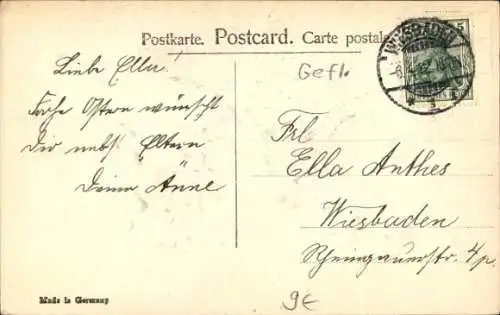 Postkarte. Postcard. Carte postale
WIESBADEN
5
Gefl.
Liebe Ella!
Frohe Ostern wünscht
Dir nebst Eltern
Deine Änne
Frl
Ella Anthes
Wiesbaden
Rheingauerstr. 4/p.
Made in Germany
9€